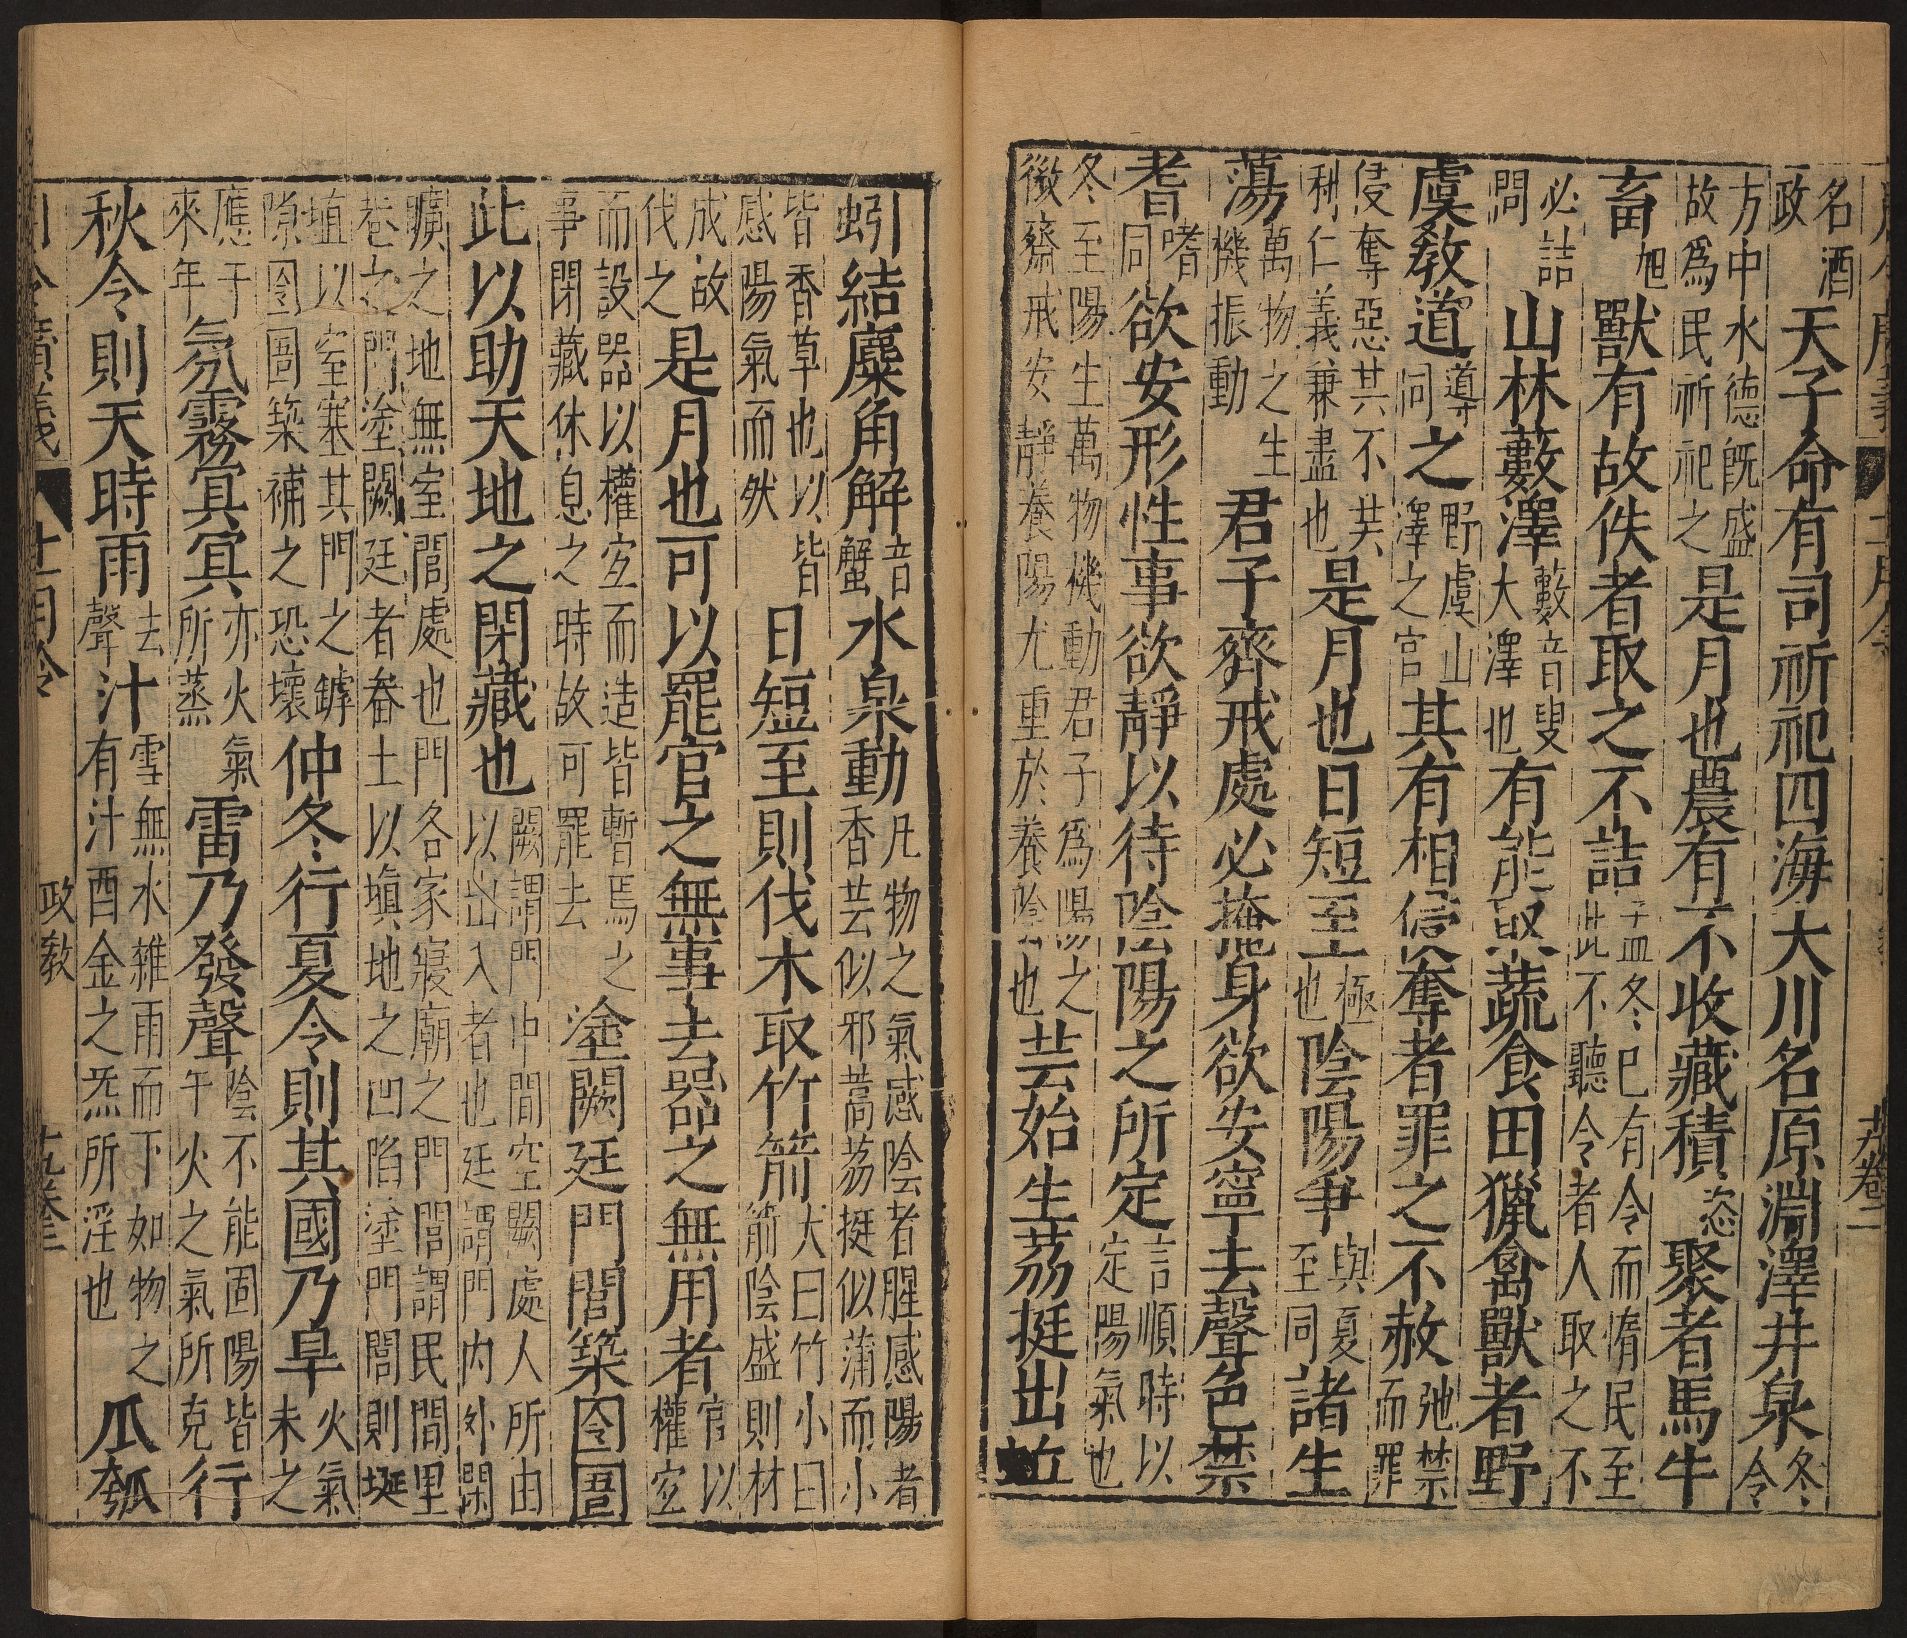 名酒政天子命有司祈祀四海大川名原淵澤井泉冬令
方中水德既盛故爲民祈祀之是月也農有不收藏積恣聚者馬牛
畜旭獸有故佚者取之不詰孟冬已有令而惰民至此不聽令者人取之不
必詰問山林藪澤藪音叟大澤也有能取蔬食田獵禽獸者野
虞教道導同之野虞山澤之官其有相侵奪者罪之不赦弛禁而罪
侵奪惡其不共利仁義兼盡也是月也日短至極也陰陽爭與夏至同諸生
蕩萬物之生機振動君子齊戒處必掩身欲安寧去聲色禁
耆嗜同欲安形性事欲靜以待陰陽之所定言順時以定陽氣也
冬至陽生萬物機動君子爲陽之微齋戒安靜養陽尤重於養陰也芸始生荔挺出蚯
蚓結麋角解音蟹水泉動凡物之氣感陰者腥感陽者香芸似邪蒿荔挺似蒲而小
皆香草也以皆感陽氣而然日短至則伐木取竹箭大曰竹小曰箭陰盛則材
成故伐之是月也可以罷官之無事去器之無用者官以權宜
而設器以權宜而造皆暫焉之事閉藏休息之時故可罷去塗闕廷門閭築囹圄
此以助天地之閉藏也闕謂門中間空闕處人所由以出入者也廷謂門內外閑
曠之地無室閭處也門各家寢廟之門閭謂民間里巷之門塗闕廷者畚土以填地之凹陷塗門閭則埏
埴以室塞其門之罅隙囹圄築補之恐壞仲冬行夏令則其國乃旱火氣未之
應于來年氛霧冥冥亦火氣所蒸雷乃發聲陰不能固陽皆午火之氣所克行
秋令則天時雨去聲汁雪無水雜雨而下如物之有汁酉金之炁所淫也瓜瓠
月令廣義 十一月令 政教